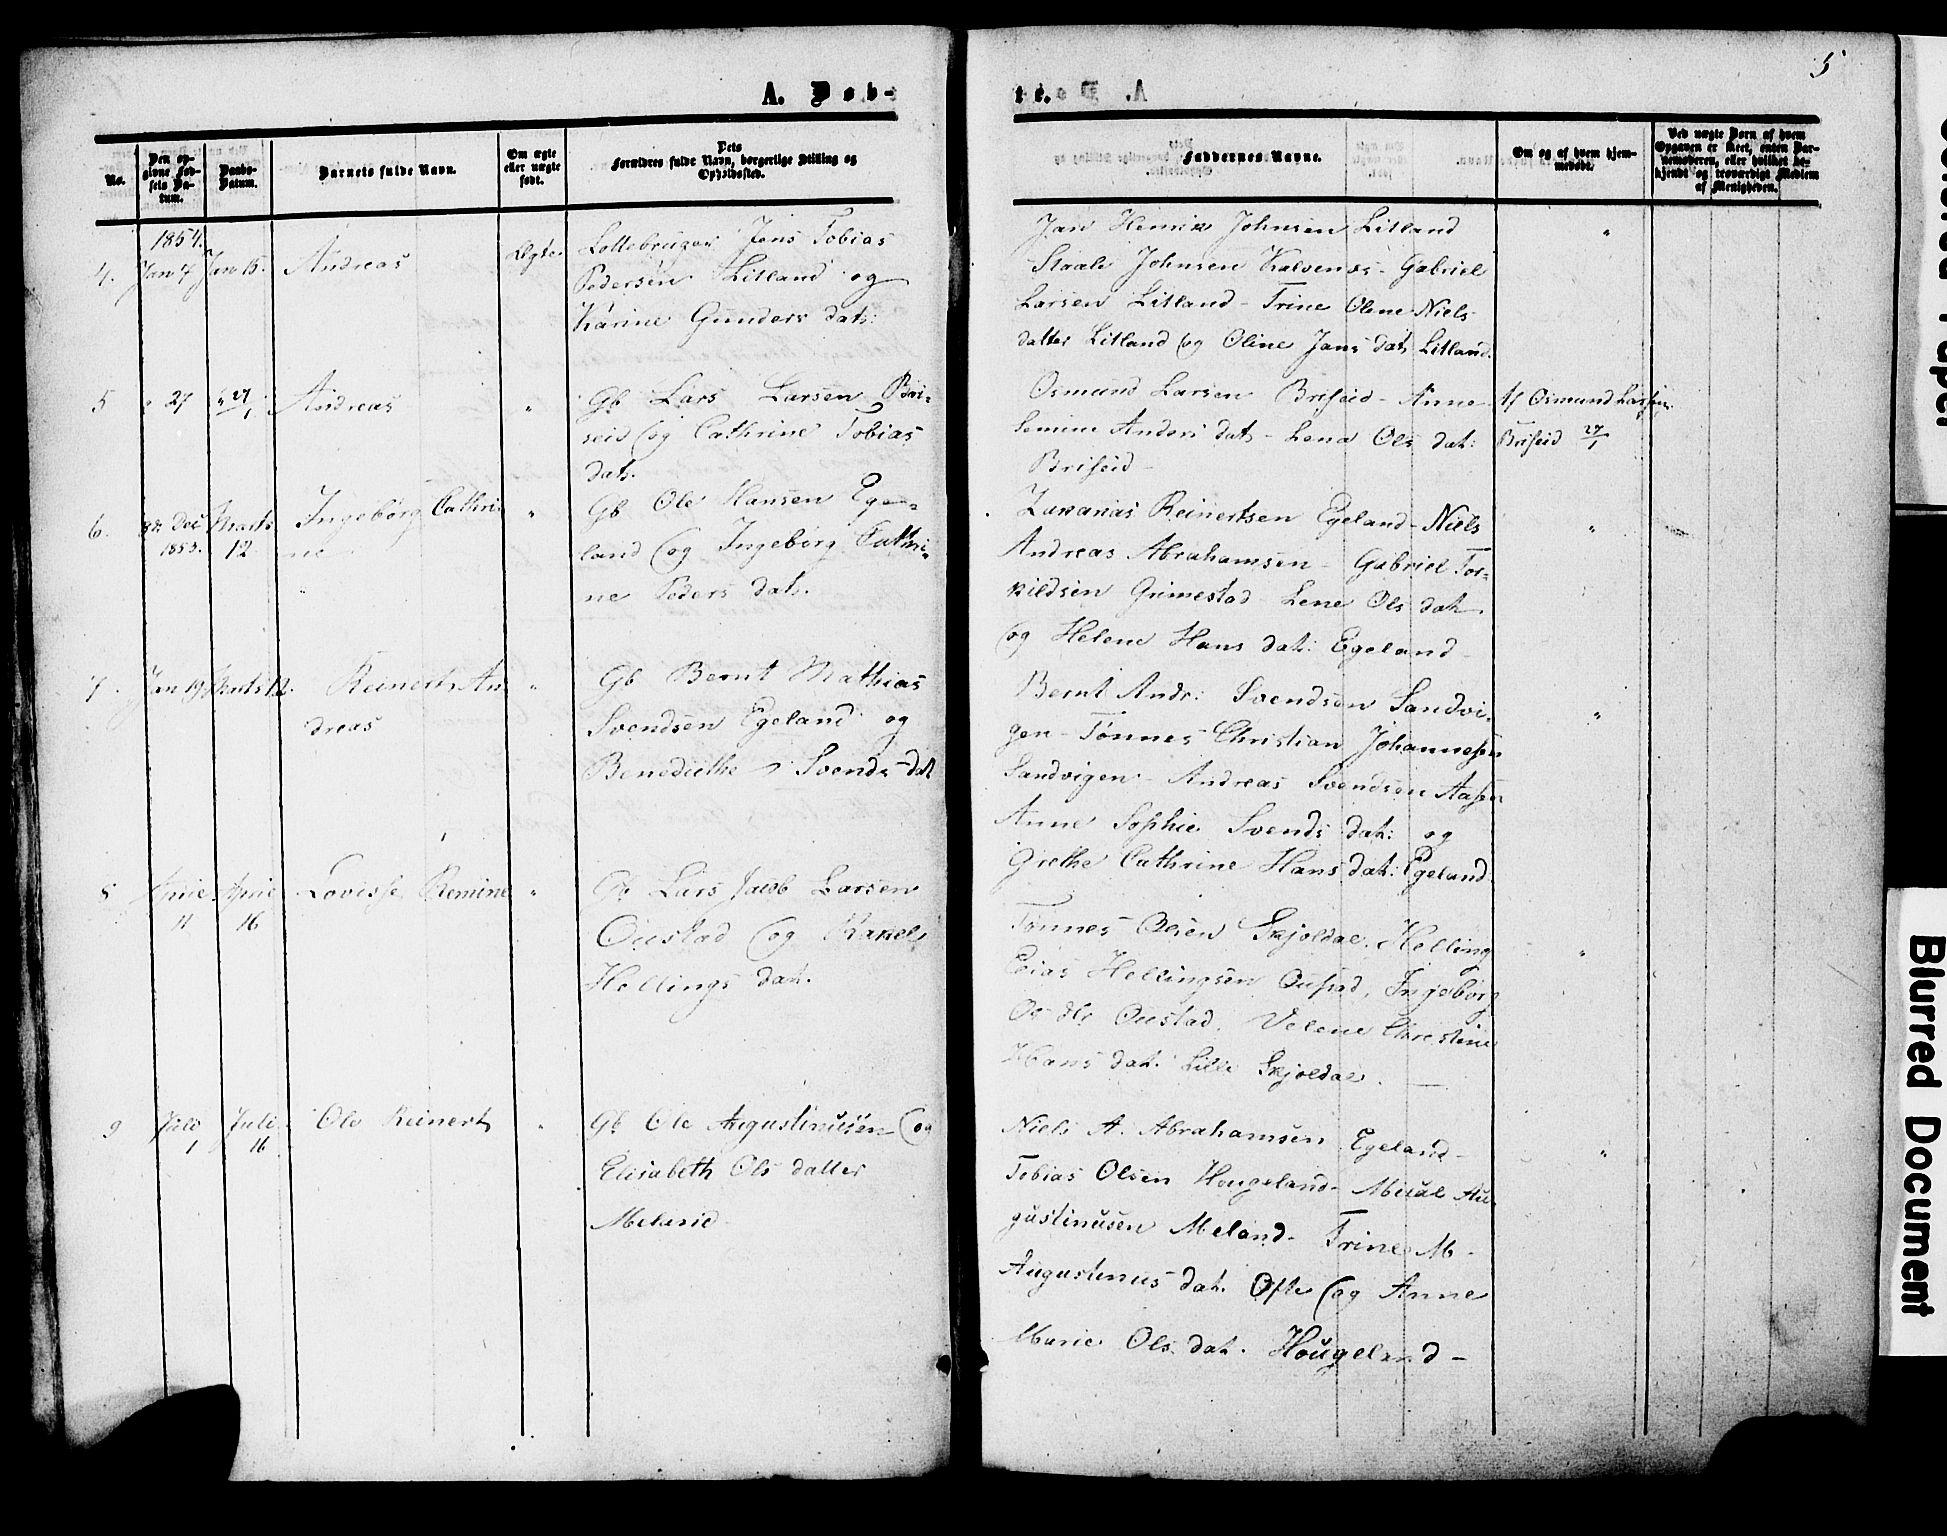 A. Døb-
te.
5
No.
Den op-
givne Fød-
sels Da-
tum.
Daabs-
Datum.
Barnets fulde Navn.
Om ægte
eller uægte
født.
Dets
Forældres fulde Navn, borgerlige Stilling og
Opholdssted.
Faddernes Navne.
Om og af hvem hjem-
medøbt.
Ved uægte Børn af hvem
Opgaven er skeet, enten Bar-
nemoderen, eller hvilket be-
kjendt og troværdigt Medlem
af Menigheden.
1854.
4. Jan 4 Jan 15. Andreas Ægte
Lottebruger Jens Tobias
Pedersen Litland og
Karine Gunders dat:
Jan Henrik Johnsen Litland "
Staale Johnsen Kalvenes - Gabriel
Larsen Litland - Trine Olene Niels
datter Litland og Oline Jans dat. Litland.
5 " 27 " 27/1 Andreas "
Gb Lars Larsen Bri-
seid og Cathrine Tobias
dat.
Osmund Larsen Briseid - Anne
Semine Anders dat - Lena Ols dat:
Briseid -
Af Osmund Larsen
Briseid 27/1
6. Dec Marts Ingeborg Cathri- "
1853. 12 ne
Gb Ole Hansen Ege-
land og Ingeborg Cathri-
ne Peders dat.
Zakarias Reinertsen Egeland - Niels "
Andreas Abrahamsen - Gabriel Tor-
kildsen Grimestad - Lene Ols dat
og Helene Hans dat: Egeland -
7. Jan 19 Marts 12. Reinert An "
dreas
Gb Bernt Mathias
Svendsen Egeland og
Benedicthe Svends dat
Bernt Andr: Svendsen Sandvi- "
gen - Tønnes Christian Johannesen
Sandvigen - Andreas Svendsen Aasen
Anne Sophie Svends dat: og
Grethe Cathrine Hans dat: Egeland.
8 April April Lovisse Remine "
11 16
Gb Lars Jacob Larsen
Oustad og Rakel
Hellings dat.
Tønnes Olsen Skjoldal. Helling "
Elias Hellingsen Oustad, Ingeborg
Oustad. Velene Chrestine
Hans dat. Lille Skjoldal. —
9 Juli Juli Ole Reinert "
1 16
Gb Ole Augustinusen og
Elisabeth Ols datter
Meland
Niels A. Abrahamsen Egeland - "
Tobias Olsen Hougeland - Mical Au-
gustinusen Meland - Trine M -
Augustinus dat. Ofte og Anne
Marie Ols dat. Hougeland -
Colored Paper
Blurred Document